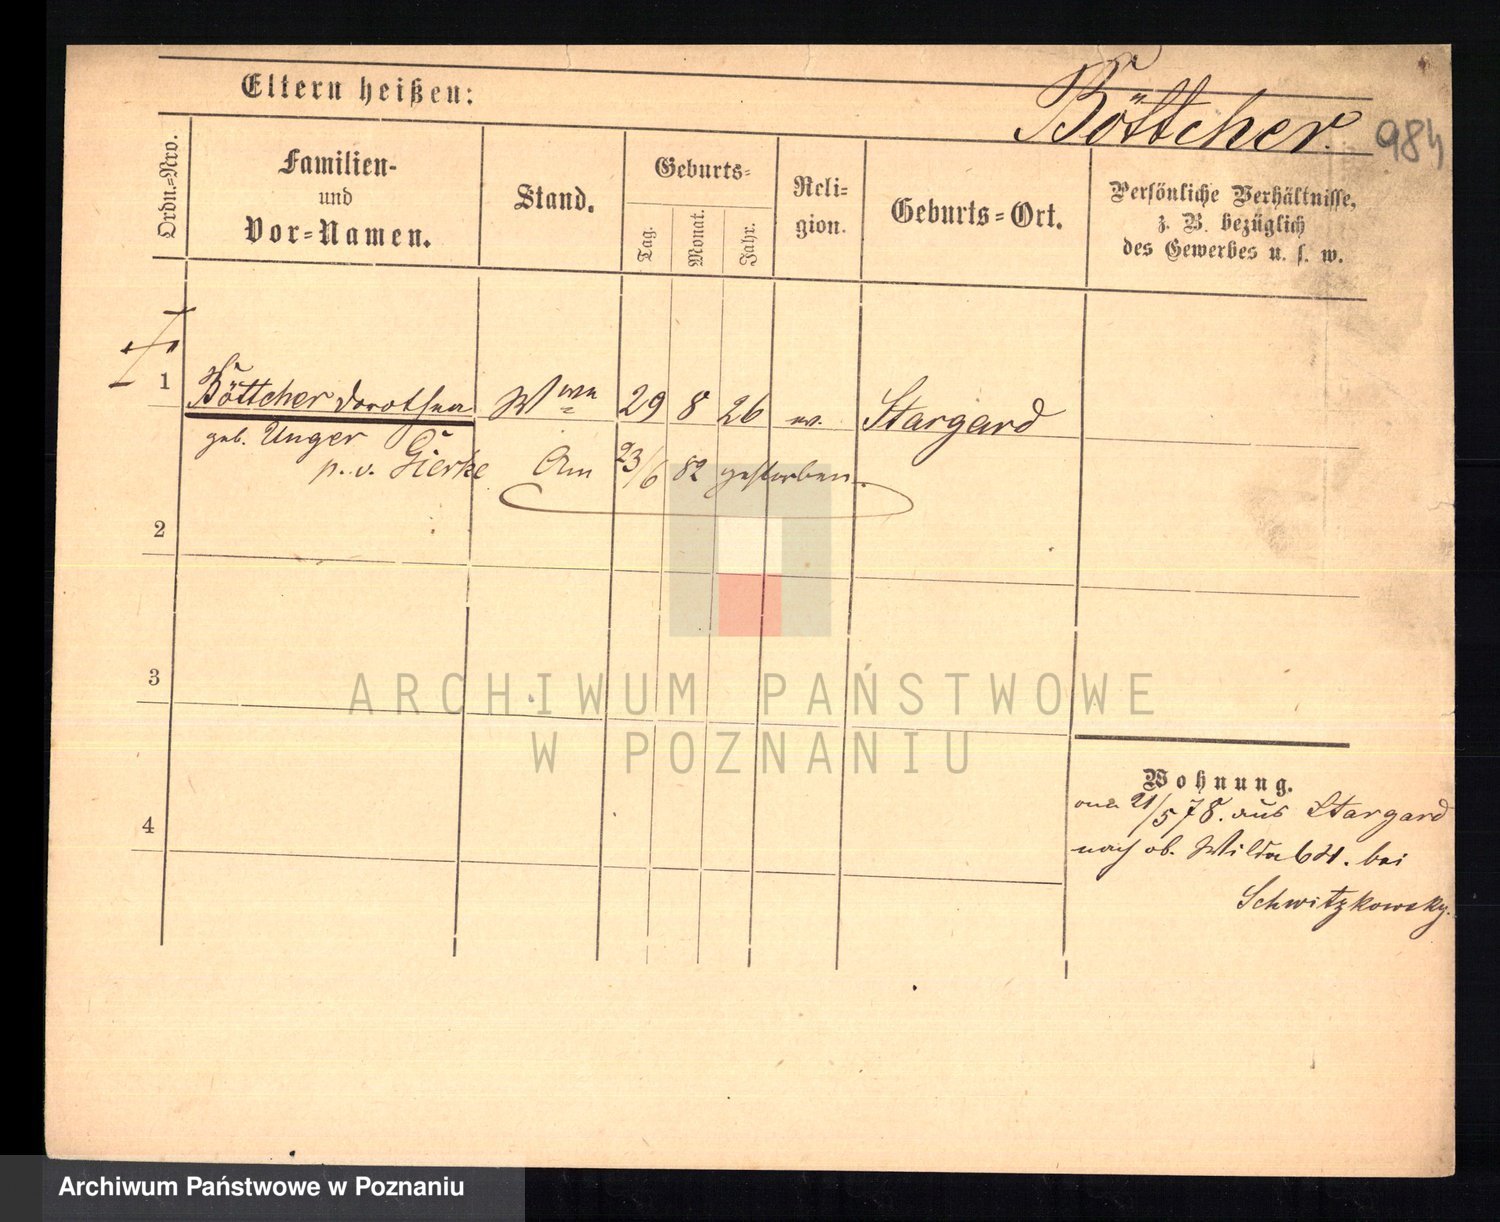 Eltern heißen:
Böttcher.
984
Ordn.=Nro.
Familien-
und
Vor=Namen.
Stand.
Geburts=
Tag.
Monat.
Jahr.
Reli=
gion.
Geburts=Ort.
Persönliche Verhältnisse,
z. B. bezüglich
des Gewerbes u. s. w.
1
Böttcher Dorothea Wwe 29 8 26 ev. Stargard
geb. Unger
p. v. Gierke Am 23/6 82 gestorben.
2
3
ARCHIWUM PAŃSTWOWE
W POZNANIU
Wohnung.
21/5 78. aus Stargard
nach ob. Wilda 64. bei
Schwitzkowsky.
4
Archiwum Państwowe w Poznaniu